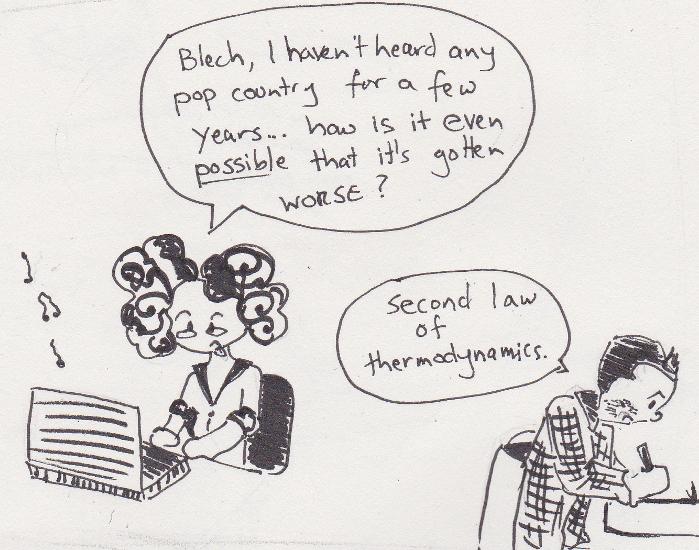 Blech, I haven't heard any
pop country for a few
years... how is it even
possible that it's gotten
WORSE?
second law
of
thermodynamics.